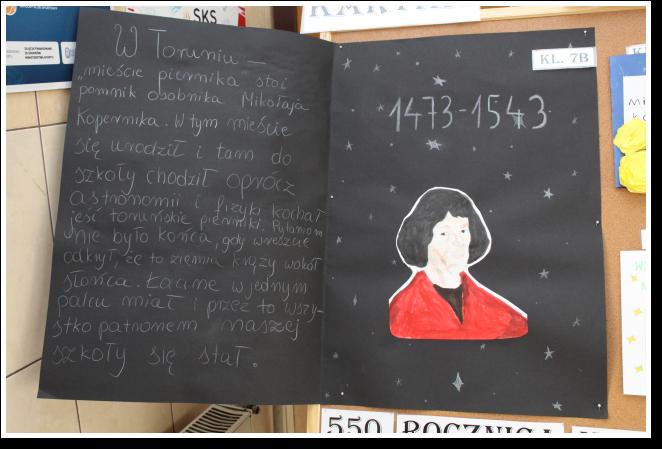 SKS
W Toruniu –
„mieście piernika stoi
pomnik osobnika Mikołaja
Kopernika. W tym mieście
się urodził i tam do
szkoły chodził oprócz
astronomii i fizyki kochał
jeść toruńskie pierniki. Pytaniom
nie było końca, gdy wreszcie
odkrył, że to ziemia krąży wokół
słońca. Łacinę w jednym
palcu miał i przez to wszy-
stko patronem naszej
szkoły się stał.
KL. 7B
1473-1543
550 ROCZNICA